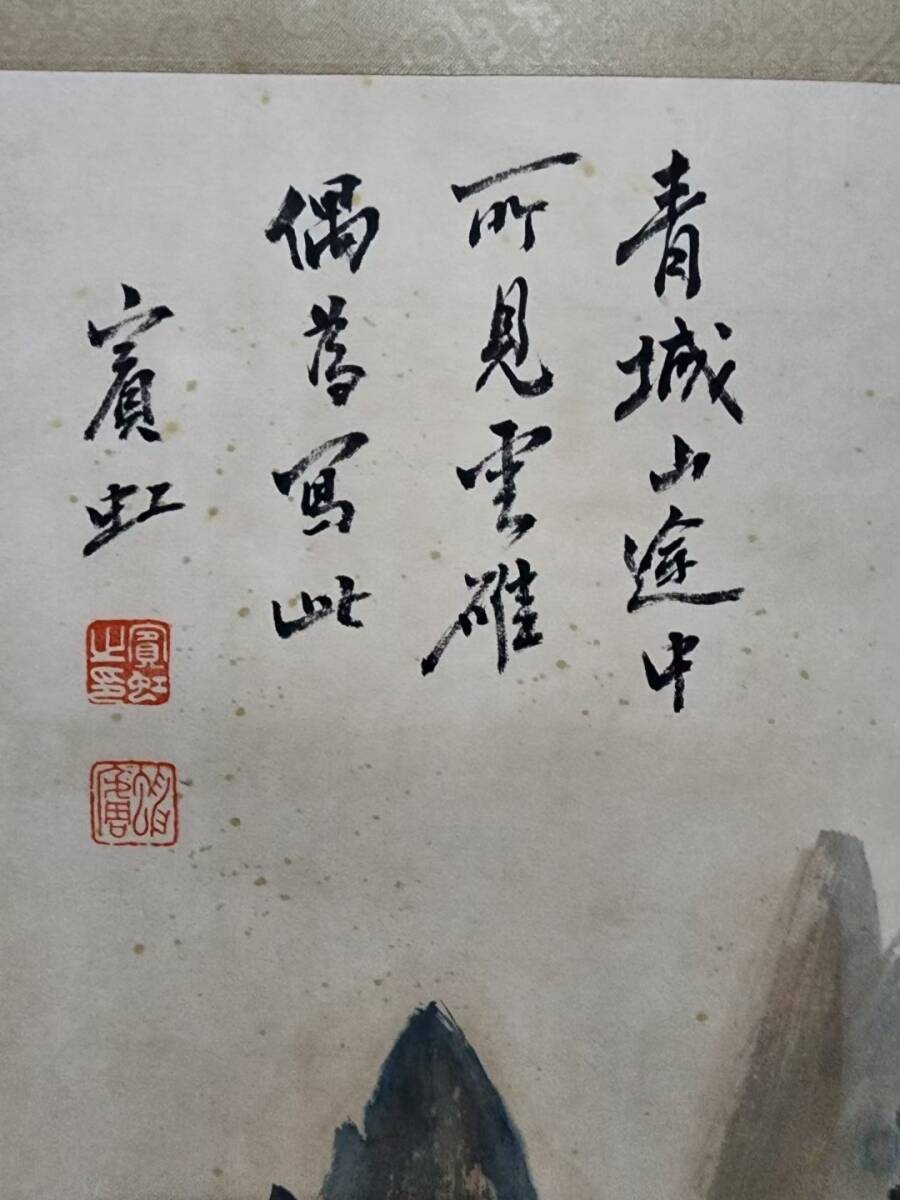 青城山途中
所見雲碓
偶寫此
賓虹
賓虹之印